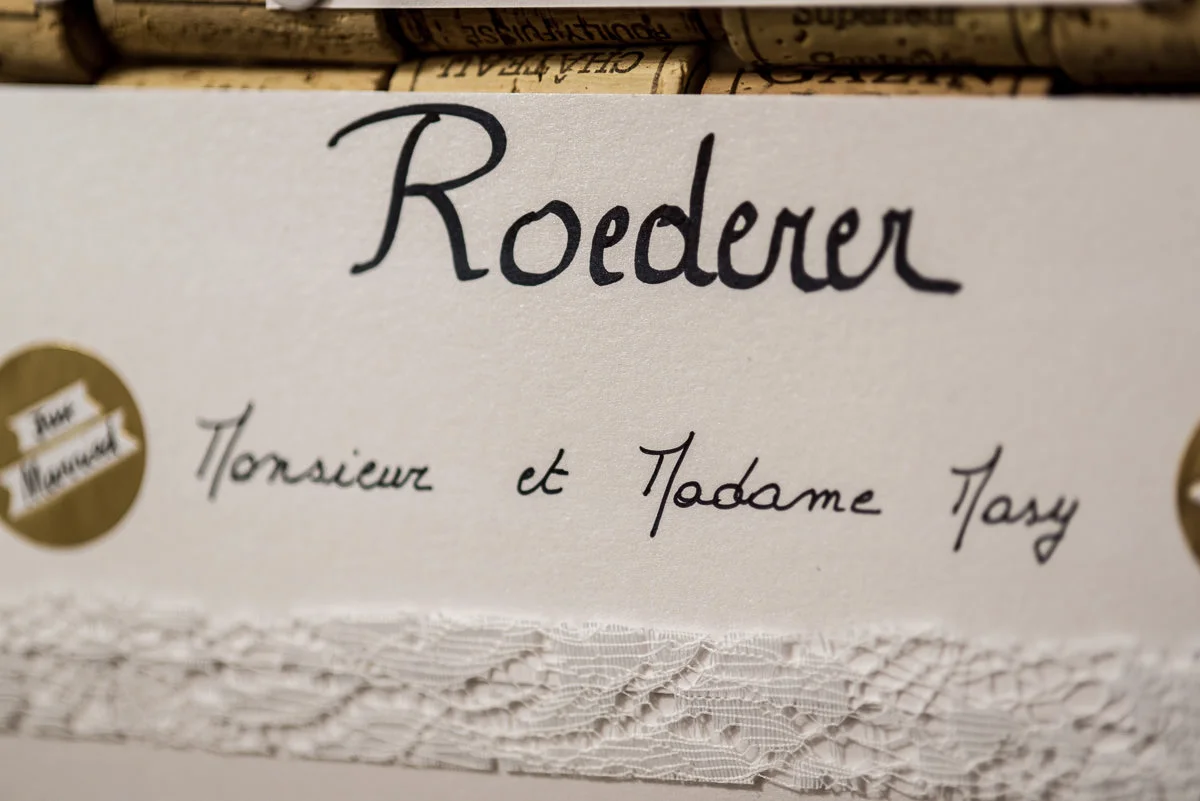 Supérieur
POUILLY-FUISSÉ
CHÂTEAU
Roederer
Just
Married
Monsieur et Madame Masy